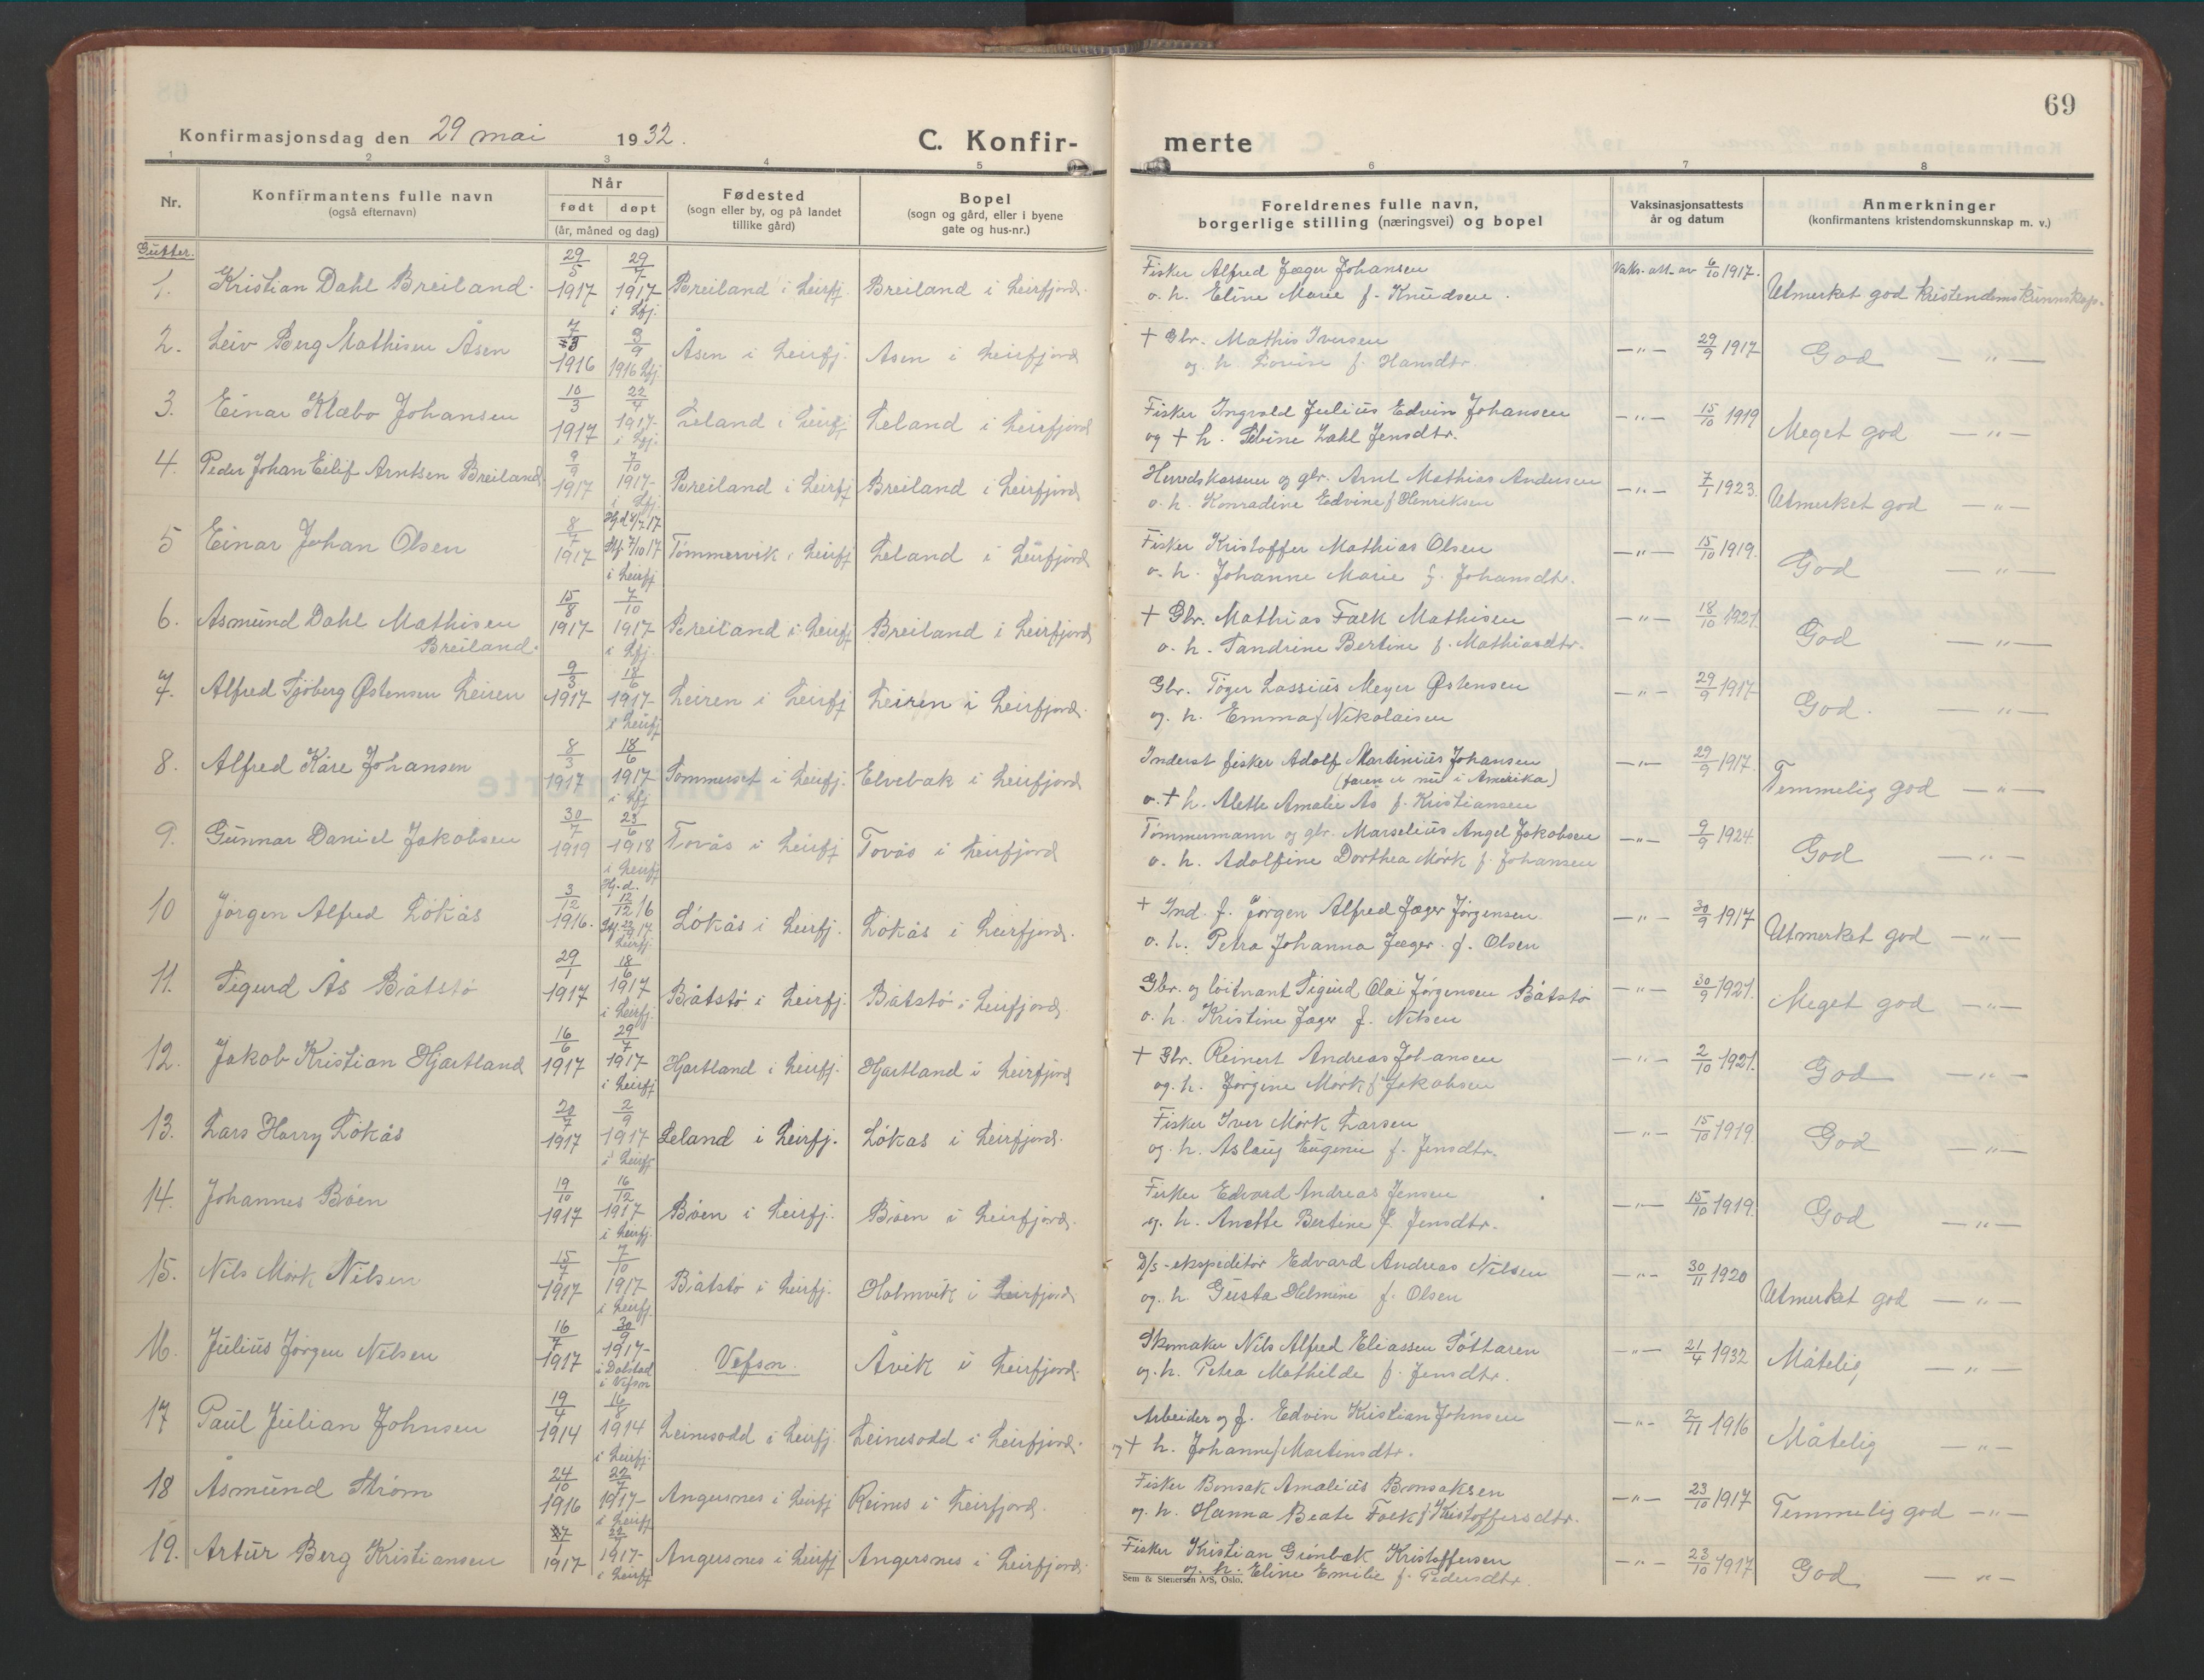 69
Konfirmasjonsdag den 29 mai 1932.
C. Konfir-
merte
1 2 3 4 5 6 7 8
Nr.
Konfirmantens fulle navn
(også efternavn)
Når
født døpt
(år, måned og dag)
Fødested
(sogn eller by, og på landet
tillike gård)
Bopel
(sogn og gård, eller i byene
gate og hus-nr.)
Foreldrenes fulle navn,
borgerlige stilling (næringsvei) og bopel
Vaksinasjonsattests
år og datum
Anmerkninger
(konfirmantens kristendomskunnskap m. v.)
Gutter.
1. Kristian Dahl Breiland. 29/5 1917 29/7 1917 i Lfj. Breiland i Leirfj. Breiland i Leirfjord.
Fisker Alfred Jæger Johansen
o. h. Eline Marie f. Knudsen.
Vaks. att. av 6/10 1917. Utmerket god kristendomskunnskap.
2. Leiv Berg Mathisen Åsen 1916 3/9 1916 Lfj. Åsen i Leirfj. Åsen i Leirfjord
+ Gbr. Mathis Iversen
og h. Lovise f. Hansdtr.
—"— 29/9 1917 God —"—
3. Einar Klæbo Johansen 10/3 1917 22/7 1917- i Lfj. Leland i Leirfj. Leland i Leirfjord
Fisker Ingvald Julius Edvin Johansen
og + h. Sibine Zahl Jensdtr.
—"— 15/10 1919 Meget god —"—
4. Peder Johan Eilif Arntsen Breiland 9/9 1917 7/10 1917- i Lfj. Breiland i Leirfj Breiland i Leirfjord
Herredskasserer og gbr. Arnt Mathias Andersen
o. h. Konradine Edvine f Henriksen
—"— 7/1 1923. Utmerket god —"—
5 Einar Johan Olsen 8/7 1917 Hj.d. 8/7 17 Stf. 7/10 17 i Leirfj Tømmervik i Leirfj Leland i Leirfjord
Fisker Kristoffer Mathias Olsen
o. h. Johanne Marie f. Johansdtr.
—"— 15/10 1919. God —"—
6. Asmund Dahl Mathisen Breiland. 15/8 1917- 7/10 1917- i Lfj. Breiland i Leirfj Breiland i Leirfjord
+ Gbr. Mathias Falk Mathisen
o. h. Sandrine Bertine f. Mathiasdtr.
—"— 18/10 1921. God —"—
7. Alfred Sjöberg Østensen Leiren 9/3 1917- 18/6 1917- i Leirfj Leiren i Leirfj Leiren i Leirfjord.
Gbr. Töger Lassius Meyer Østensen
og h. Emma f Nikolaisen
—"— 29/9 1917- God. —"—
8. Alfred Kåre Johansen 8/3 1917 18/6 1917 i Lfj Sommerset i Leirfj. Elvebak i Leirfjord
Inderst fisker Adolf Martinius Johansen
(faren er nu i Amerika)
o. + h. Alette Amalie Ås f. Kristiansen
—"— 29/9 1917. Temmelig god —"—
9. Gunnar Daniel Jakobsen 30/7 1919 23/6 1918 i Leirfj Tovås i Leirfj Tovås i Leirfjord
Tømmermann og gbr. Marselius Angel Jakobsen
o. h. Adolfine Dorthea Mörk f. Johansen
—"— 9/9 1924. God —"—
10 Jörgen Alfred Lökås 3/12 1916. Hj.d. 12/12 16 Leirfj. Lökås i Leirfj. Lökås i Leirfjord.
+ Ind. f. Jörgen Alfred Jæger Jörgensen
o. h. Petra Johanna Jæger f. Olsen
—"— 30/9 1917 Utmerket god —"—
11. Sigurd Ås Båtstö 29/1 1917 18/6 1917 i Leirfj. Båtstö i Leirfj. Båtstö i Leirfjord.
Gbr. og löitnant Sigurd Olai Jörgensen Båtstö
o. h. Kristine Jæger f. Nilsen
—"— 30/9 1921. Meget god —"—
12. Jakob Kristian Hjartland 16/6 1917 29/7 1917- i Leirfj Hjartland i Leirfj. Hjartland i Leirfjord
+ Gbr. Reinert Andreas Johansen
og. h. Jörgine Mörk f Jakobsen
—"— 2/10 1921. God —"—
13. Lars Harry Lökås 20/7 1917 2/9 1917 i Leirfj Leland i Leirfj. Lökås i Leirfjord.
Fisker Iver Mörk Larsen
og. h. Aslaug Eugenie f. Jensdtr.
—"— 15/10 1919. God —"—
14. Johannes Böen 19/10 1917 16/12 1917- i Leirfj. Böen i Leirfj. Böen i Leirfjord.
Fisker Edvard Andreas Jensen
og. h. Anette Bertine f. Jensdtr.
—"— 15/10 1919. God —"—
15. Nils Mörk Nilsen 15/7 1917 7/10 1917- i Leirfj. Båtstö i Leirfj. Holmvik i Leirfjord.
D/s-ekspeditör Edvard Andreas Nilsen
og. h. Gusta Helmine f. Olsen
—"— 30/11 1920 Utmerket god —"—
16. Julius Jörgen Nilsen 16/7 1917 30/9 1917- i Dolstad i Vefsn Vefsn. Åvik i Leirfjord.
Skomaker Nils Alfred Eliassen Söttaren
og. h. Petra Mathilde f. Jensdtr.
—"— 21/4 1932 Måtelig —"—
17 Paul Julian Johnsen 19/4 1914 16/8 1914 i Leirfj. Leinesodd i Leirfj. Leinesodd i Leirfjord.
Arbeider og f. Edvin Kristian Johnsen
og + h. Johanne f Martinsdtr.
—"— 2/11 1916 Måtelig —"—
18 Åsmund Ström 24/10 1916 22/7 1917- i Leirfj Angersnes i Leirfj Reines i Leirfjord.
Fisker Bonsak Amalius Bonsaksen
og. h. Hanna Beate Falk f Kristoffersdtr.
—"— 23/10 1917 Temmelig god —"—
19. Artur Berg Kristiansen 1917 22/7 1917- i Leirfj Angersnes i Leirfj Angersnes i Leirfjord.
Fisker Kristian Grönbæk Kristoffersen
og. h. Eline Emilie f. Pedersdtr.
—"— 23/10 1917 God —"—
Sem & Stenersen A/S, Oslo.